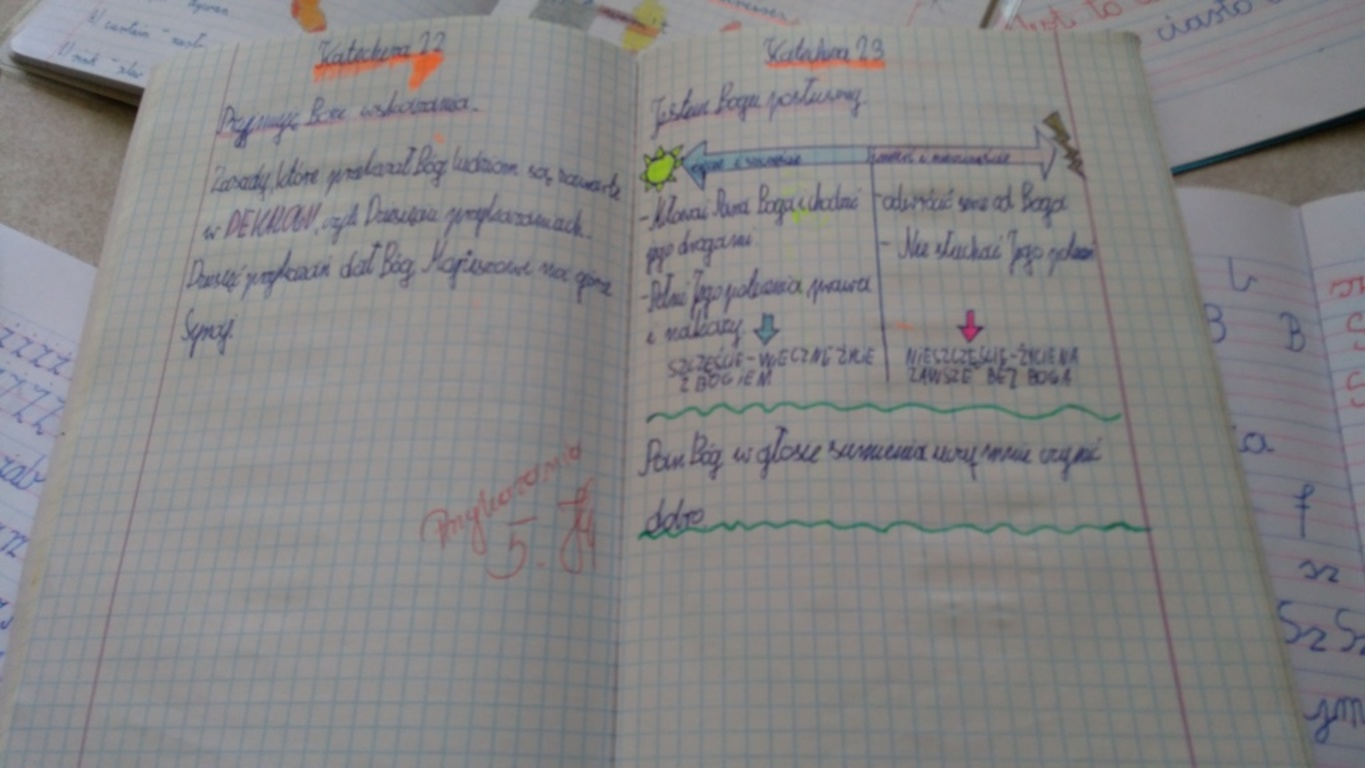 Katecheza 22
Przyjmuję Boże wskazania.
Zasady, które przekazał Bóg ludziom są zawarte
w DEKALOGU, czyli Dziesięciu przykazaniach.
Dziesięć przykazań dał Bóg Mojżeszowi na górze
Synaj.
Przykazania
5.
Katecheza 23
Jestem Bogu posłuszny.
życie i szczęście
śmierć i nieszczęście
- Miłować Pana Boga i chodzić
jego drogami
- Pełnić Jego polecenia, prawa
i nakazy
SZCZĘŚCIE-WIECZNE ŻYCIE
Z BOGIEM
- odwrócić serce od Boga
- Nie słuchać Jego poleceń
NIESZCZĘŚCIE-ŻYCIE NA
ZAWSZE BEZ BOGA
Pan Bóg w głosie sumienia uczy mnie czynić
dobro
ciasto
B B
f
sz
Sz Sz